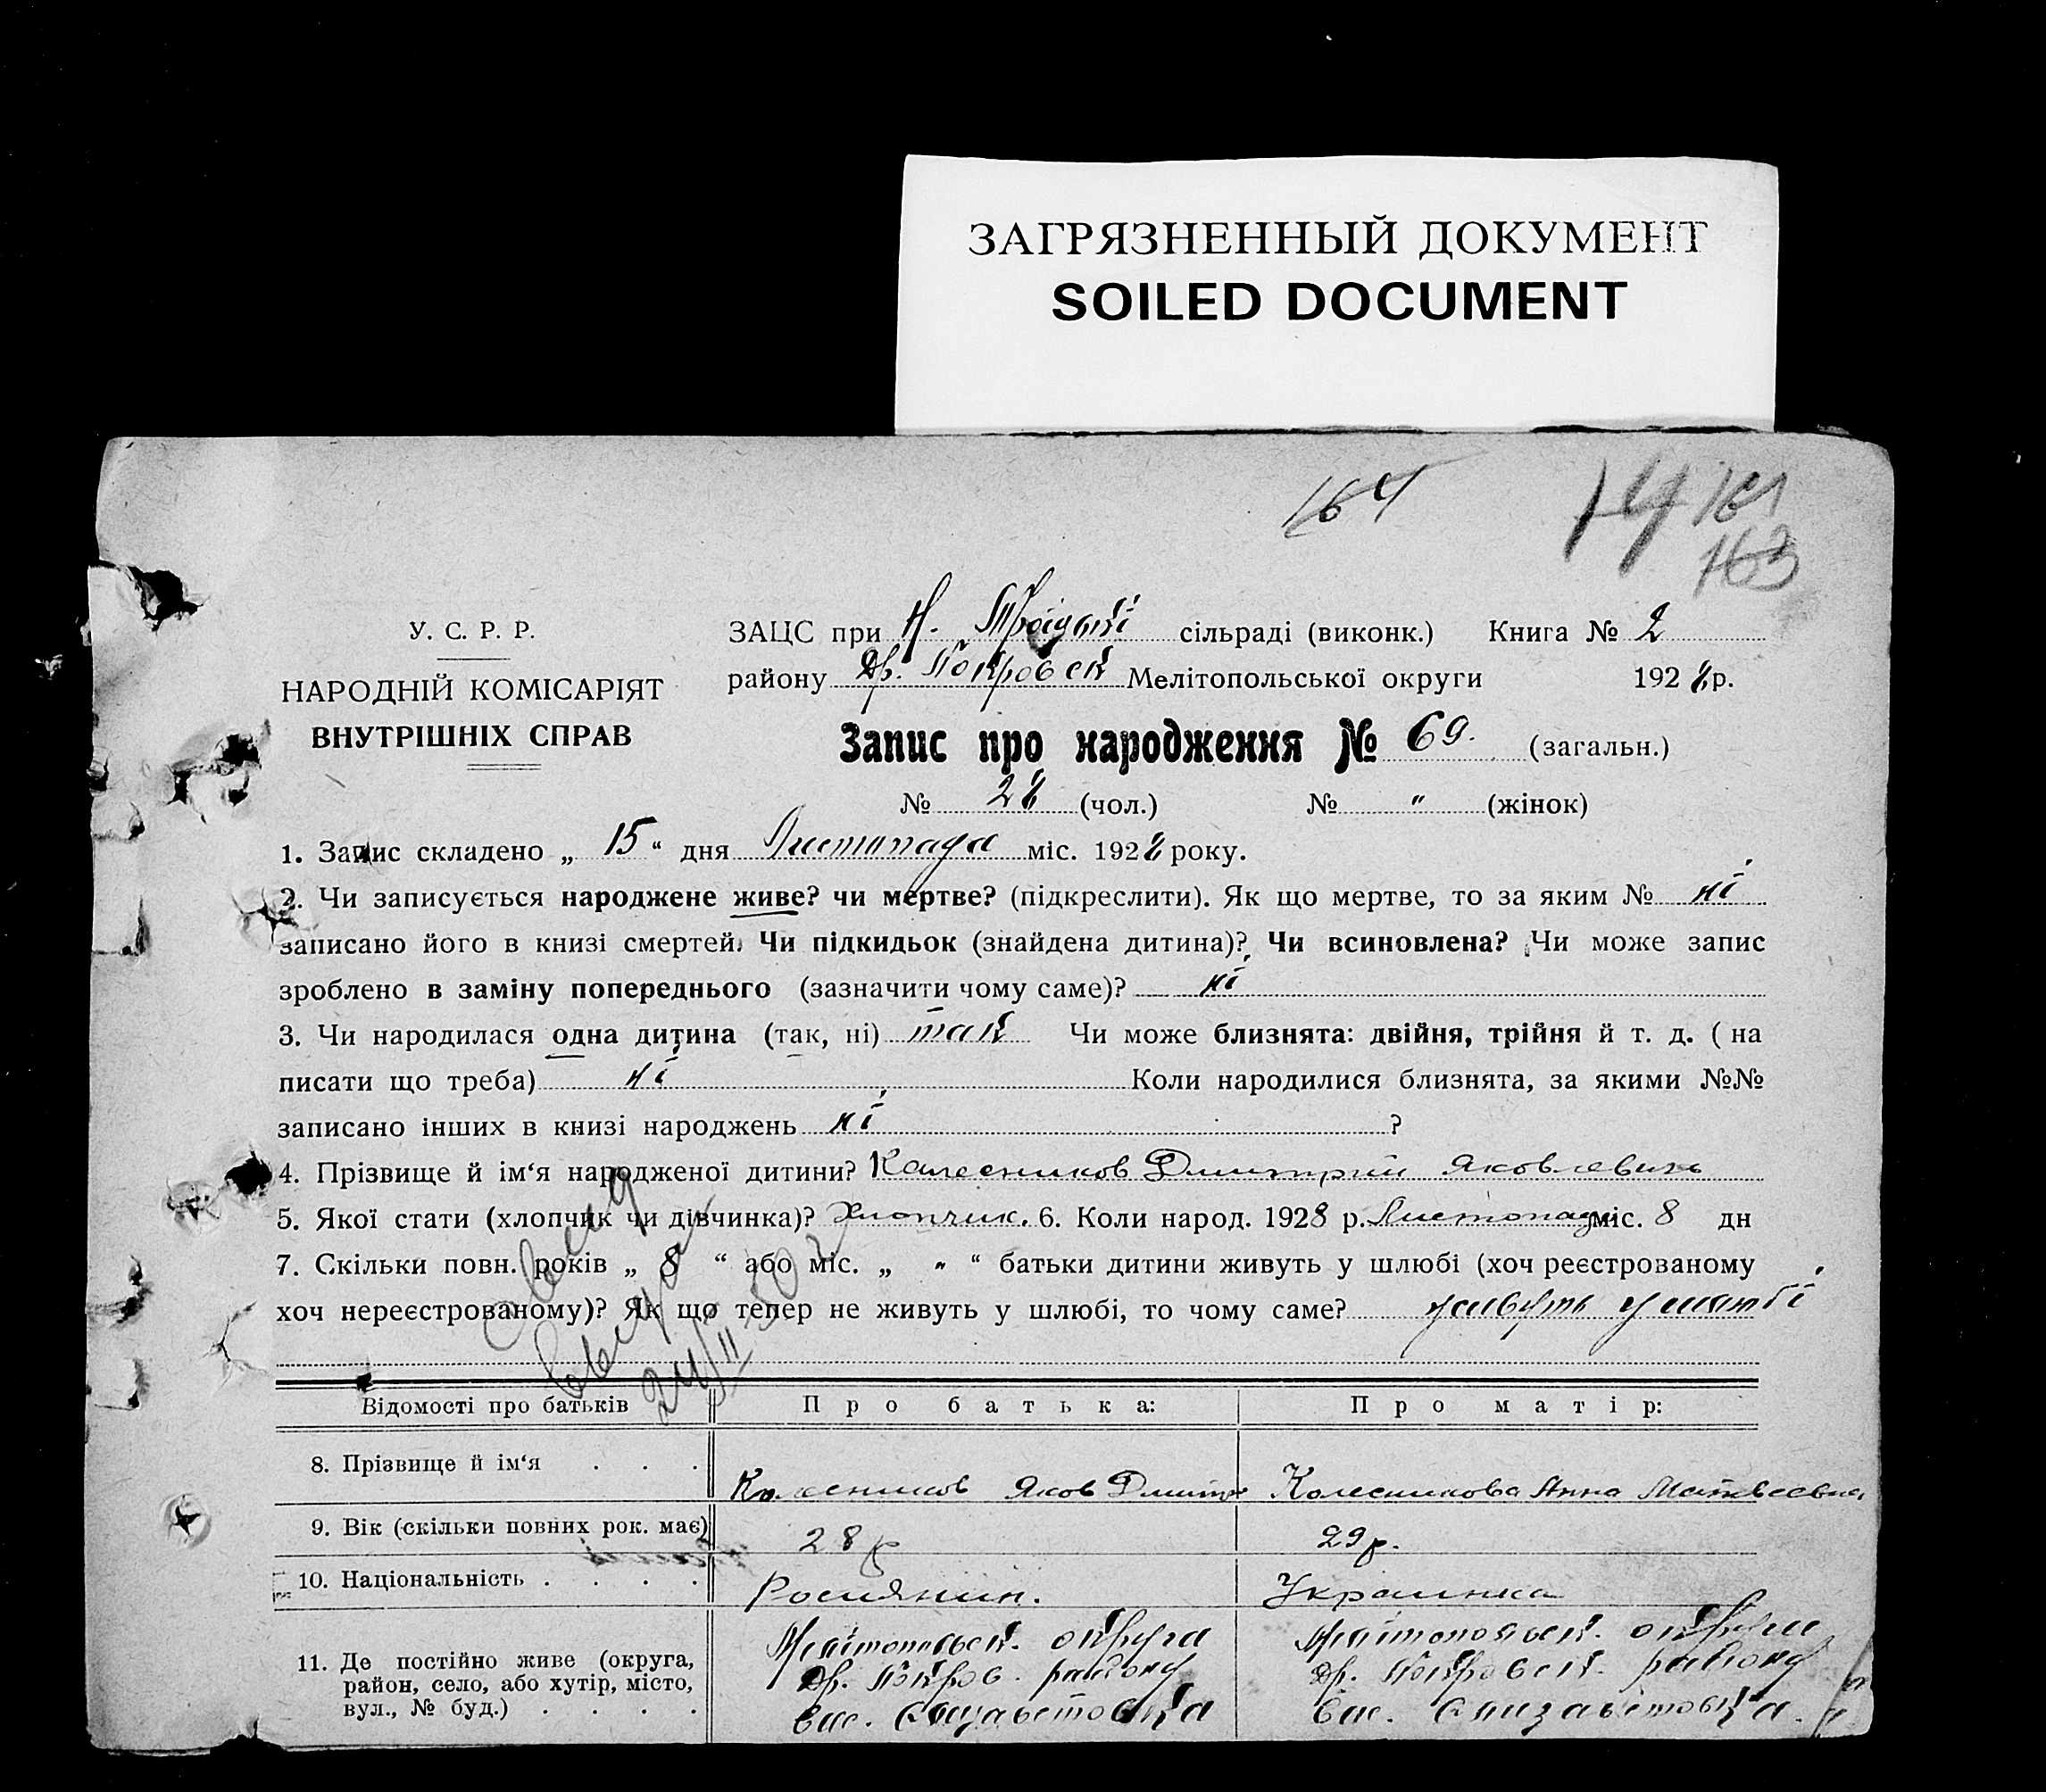 ЗАГРЯЗНЕННЫЙ ДОКУМЕНТ
SOILED DOCUMENT
164
14 161
163
У. С. Р. Р.
НАРОДНІЙ КОМІСАРІЯТ
ВНУТРІШНІХ СПРАВ
ЗАЦС при Н. Троїцькі сільраді (виконк.) Книга № 2
району Др. Покровськ Мелітопольської округи 1928 р.
Запис про народження № 69. (загальн.)
№ 28 (чол.) № " (жінок)
1. Запис складено „ 15 “ дня Листопада міс. 1928 року.
2. Чи записується народжене живе? чи мертве? (підкреслити). Як що мертве, то за яким № ні
записано його в книзі смертей. Чи підкидьок (знайдена дитина)? Чи всиновлена? Чи може запис
зроблено в заміну попереднього (зазначити чому саме)? ні
3. Чи народилася одна дитина (так, ні) так Чи може близнята: двійня, трійня й т. д. ( на
писати що треба) ні Коли народилися близнята, за якими №№
записано інших в книзі народжень ні ?
4. Прізвище й ім‘я народженої дитини? Колесников Дмитрий Яковлевич
5. Якої стати (хлопчик чи дівчинка)? Хлопчик. 6. Коли народ. 1928 р. Листопада міс. 8 дн
7. Скільки повн. років „ 8 “ або міс. „ " “ батьки дитини живуть у шлюбі (хоч реєстрованому
хоч нереєстрованому)? Як що тепер не живуть у шлюбі, то чому саме? живуть у шлюбі
24/II 30
Відомості про батьків Про батька: Про матір:
8. Прізвище й ім‘я . . . Колесников Яков Дмитр Колесникова Анна Матвеевна
9. Вік (скільки повних рок. має) 28 р 29 р.
10. Національність . . . . Росиянин. Украинка
11. Де постійно живе (округа, Мелітопольськ. округа Мелітопольськ. округи
район, село, або хутір, місто, Др. Покров. району Др. Покровськ. району
вул., № буд.) . . . . вис. Єлизаветовка вис. Єлизаветовка.